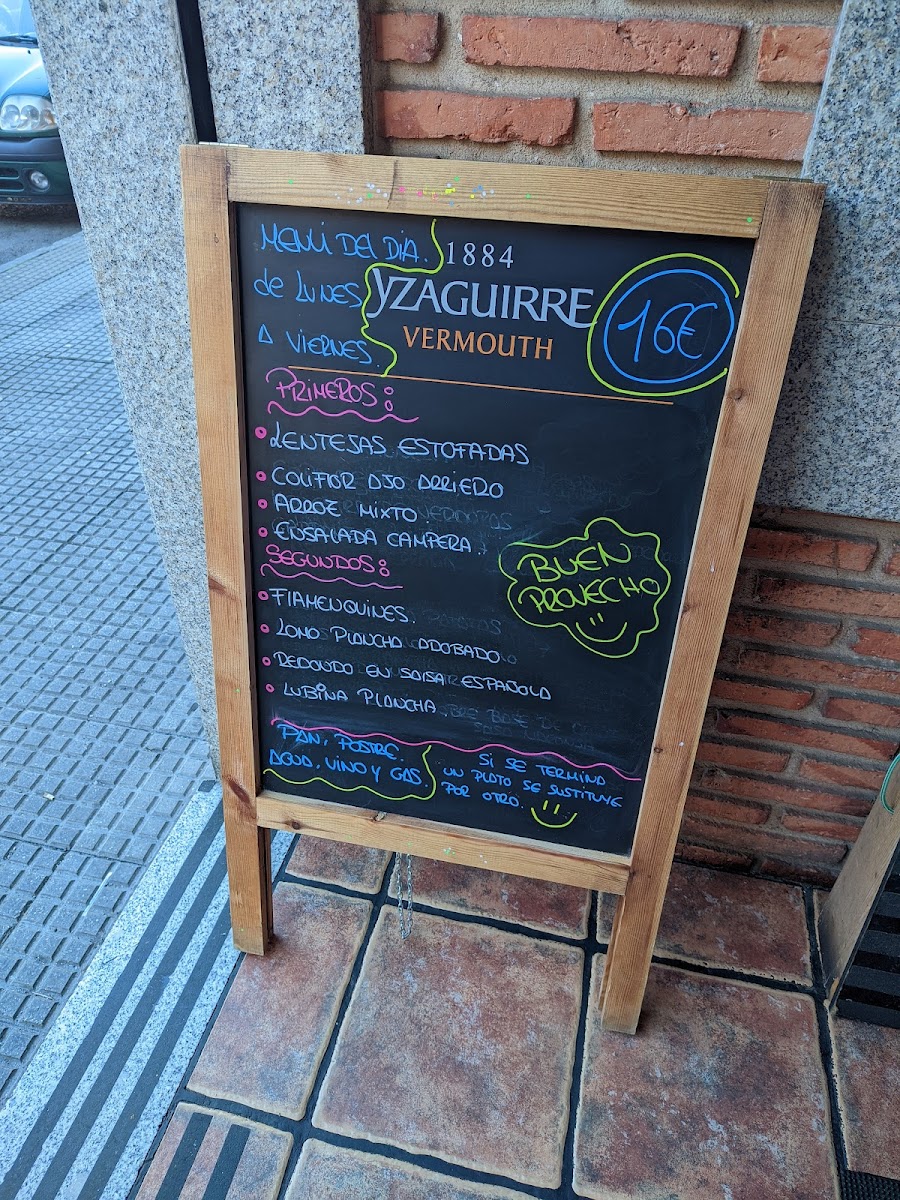 MENÚ DEL DIA.
de LUNES
A VIERNES.
1884
YZAGUIRRE
VERMOUTH
16€
PRIMEROS:
LENTEJAS ESTOFADAS
COLIFLOR AJO ARRIERO
ARROZ MIXTO
ENSALADA CAMPERA.
SEGUNDOS:
FLAMENQUINES.
LOMO PLANCHA ADOBADO
REDONDO EN SALSA ESPAÑOLA
LUBINA PLANCHA
BUEN
PROVECHO
PAN, POSTRE.
AGUA, VINO Y GAS
SI SE TERMINA
UN PLATO SE SUSTITUYE
POR OTRO.